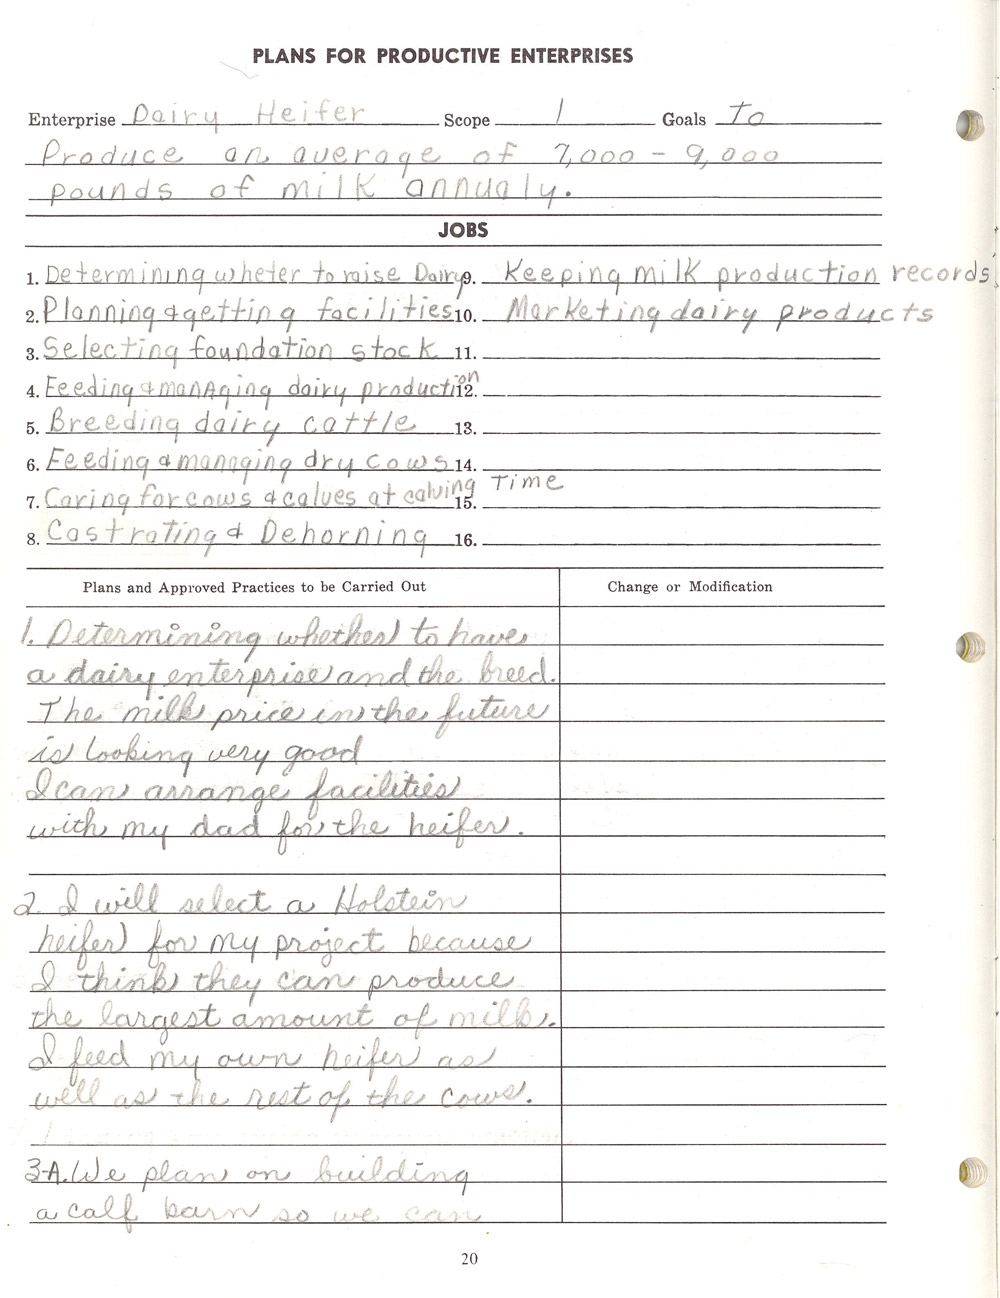 PLANS FOR PRODUCTIVE ENTERPRISES
Enterprise Dairy Heifer Scope 1 Goals To
Produce an average of 7,000 - 9,000
pounds of milk annualy.
JOBS
1. Determining wheter to raise Dairy 9. Keeping milk production records.
2. Planning & getting facilities 10. Marketing dairy products
3. Selecting foundation stock 11.
4. Feeding & managing dairy production 12.
5. Breeding dairy cattle 13.
6. Feeding & managing dry cows 14.
7. Caring for cows & calves at calving Time 15.
8. Castrating & Dehorning 16.
Plans and Approved Practices to be Carried Out Change or Modification
1. Determining whether to have
a dairy enterprise and the breed.
The milk price in the future
is looking very good
I can arrange facilities
with my dad for the heifer.
2. I will select a Holstein
heifer for my project because
I think they can produce
the largest amount of milk.
I feed my own heifer as
well as the rest of the cows.
3-A. We plan on building
a calf barn so we can
20